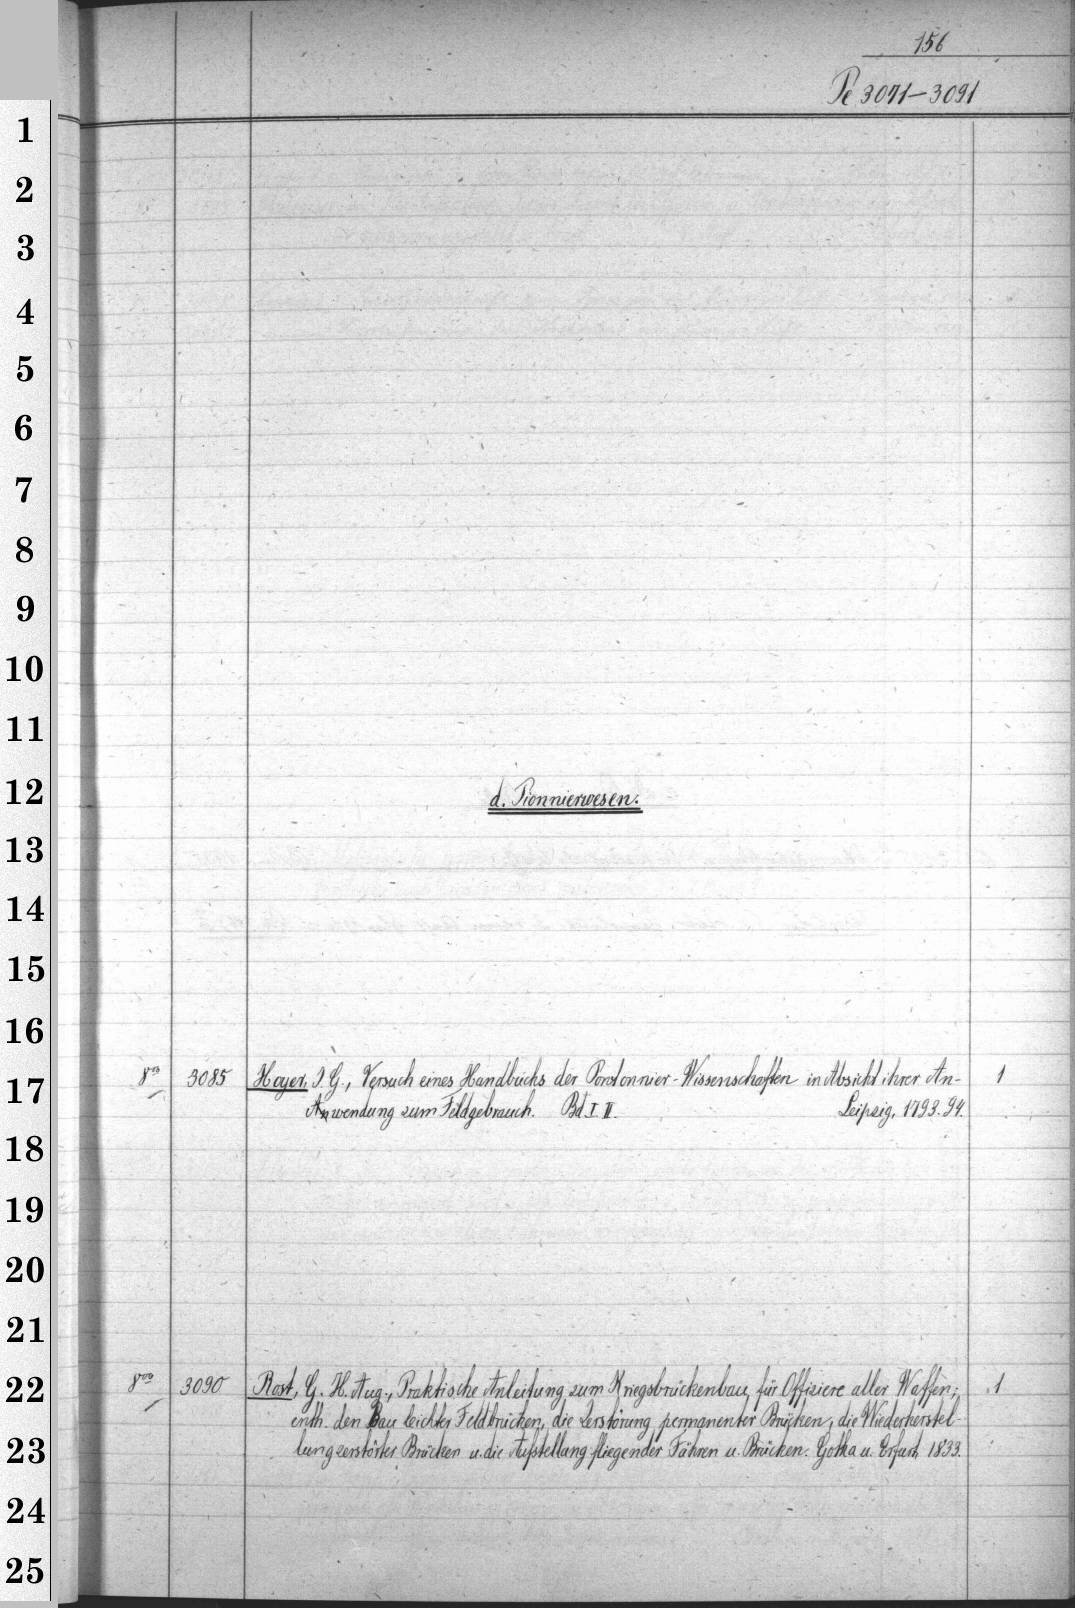 156
Pe 3071-3091
1
2
3
4
5
6
7
8
9
10
11
12
d. Pionnierwesen.
13
14
15
16
17
8vo 3085 Hoyer, J. G., Versuch eines Handbuchs der Pontonnier-Wissenschaften in Absicht ihrer An- 1
Anwendung zum Feldgebrauch. Bd. I II. Leipzig, 1793. 94.
18
19
20
21
22
8vo 3090 Rost, G. H. Aug., Praktische Anleitung zum Kriegsbrückenbau, für Offiziere aller Waffen; 1
enth. den Bau leichter Feldbrücken, die Zerstörung permanenter Brücken, die Wiederherstel-
23
lung zerstörter Brücken u. die Aufstellung fliegender Fähren u. Brücken. Gotha u. Erfurt, 1833.
24
25